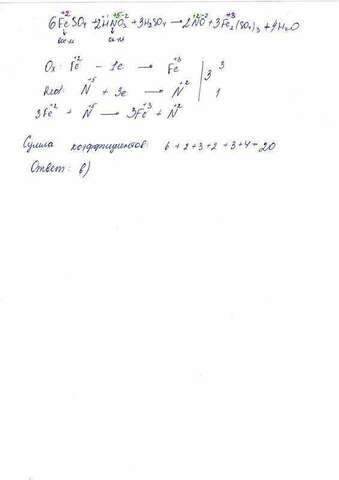 6FeSO4 + 2HNO3 + 3H2SO4 → 2NO + 3Fe2(SO4)3 + 4H2O
вос-ль ок-ль
Ox: Fe+2 − 1e → Fe+3 | 3 3
Red: N+5 + 3e → N+2 | 1
3Fe+2 + N+5 → 3Fe+3 + N+2
Сумма коэффициентов: 6 + 2 + 3 + 2 + 3 + 4 = 20
Ответ: в)